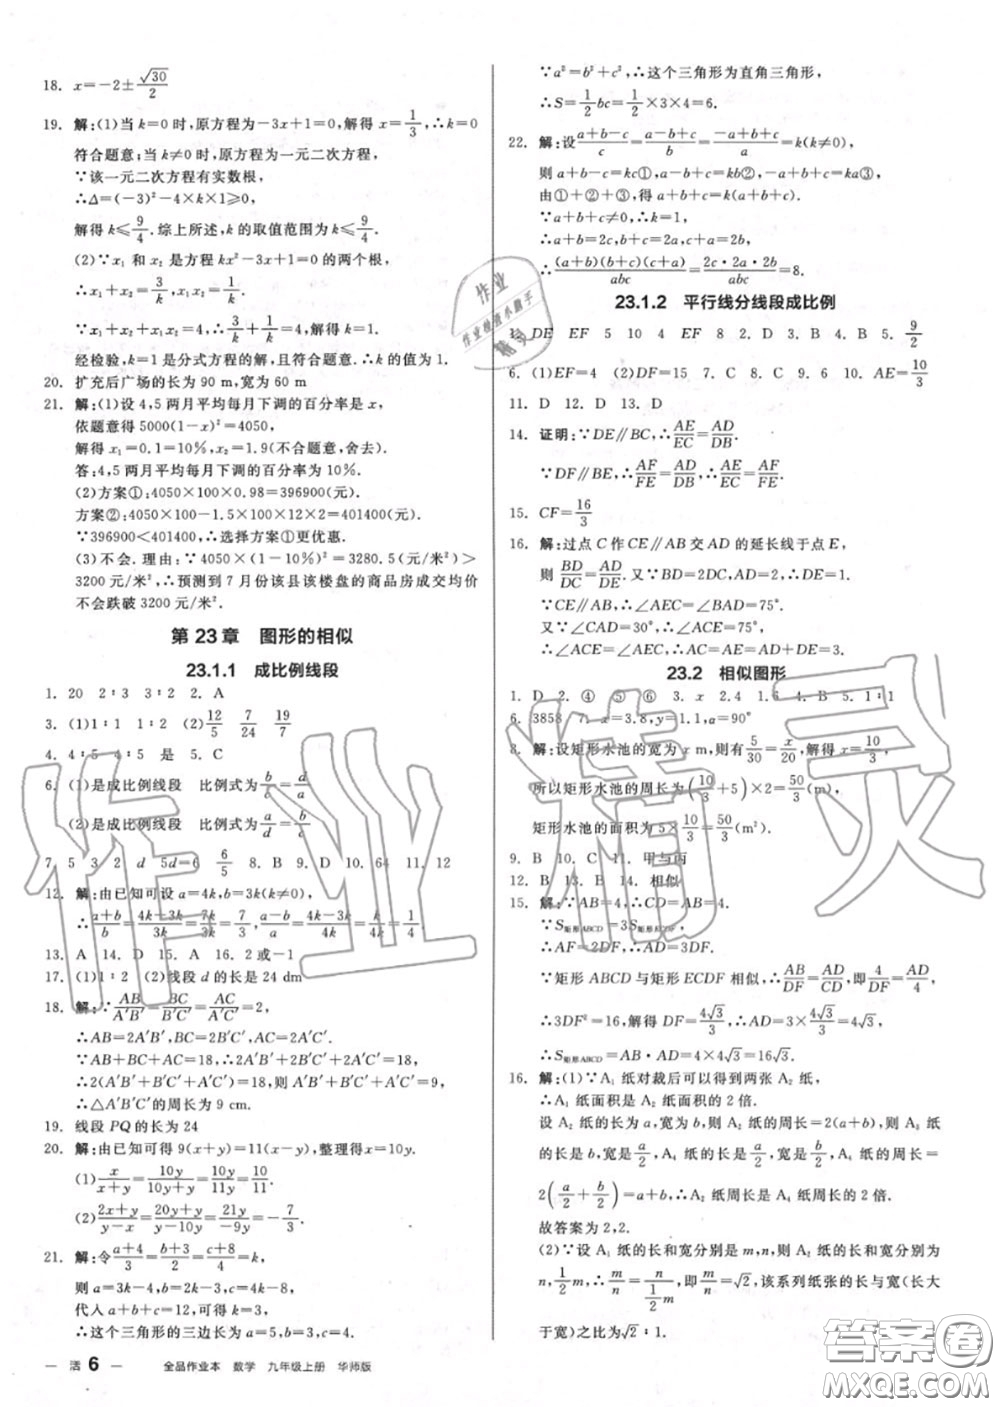 18. x=-2±√30/2
19. 解:(1)当 k=0 时,原方程为-3x+1=0,解得 x=1/3,∴k=0
符合题意;当 k≠0 时,原方程为一元二次方程,
∵该一元二次方程有实数根,
∴Δ=(-3)²-4×k×1≥0,
解得 k≤9/4.综上所述,k 的取值范围为 k≤9/4.
(2)∵x₁ 和 x₂ 是方程 kx²-3x+1=0 的两个根,
∴x₁+x₂=3/k,x₁x₂=1/k.
∵x₁+x₂+x₁x₂=4,∴3/k+1/k=4,解得 k=1.
经检验,k=1 是分式方程的解,且符合题意.∴k 的值为 1.
20. 扩充后广场的长为 90 m,宽为 60 m
21. 解:(1)设 4,5 两月平均每月下调的百分率是 x,
依题意得 5000(1-x)²=4050,
解得 x₁=0.1=10%,x₂=1.9(不合题意,舍去).
答:4,5 两月平均每月下调的百分率为 10%.
(2)方案①:4050×100×0.98=396900(元).
方案②:4050×100-1.5×100×12×2=401400(元).
∵396900<401400,∴方案①更优惠.
(3)不会. 理由:∵4050×(1-10%)²=3280.5(元/米²)>
3200 元/米²,∴预测到 7 月份该县该楼盘的商品房成交均价
不会跌破 3200 元/米².
第 23 章 图形的相似
23.1.1 成比例线段
1. 20 2∶3 3∶2 2. A
3. (1)1∶1 1∶2 (2)12/5 7/24 19/7
4. 4∶5 4∶5 是 5. C
6. (1)是成比例线段 比例式为b/c=a/a
(2)是成比例线段 比例式为a/d=b/c
7. 5 3 2 d 5d=6 6/5 8. B 9. D 10. 64 11. 12
12. 解:由已知可设 a=4k,b=3k(k≠0),
∴(a+b)/b=(4k+3k)/3k=7k/3k=7/3,(a-b)/a=(4k-3k)/4k=k/4k=1/4.
13. A 14. D 15. A 16. 2 或-1
17. (1)1∶2 (2)线段 d 的长是 24 dm
18. 解:∵AB/A′B′=BC/B′C′=AC/A′C′=2,
∴AB=2A′B′,BC=2B′C′,AC=2A′C′.
∵AB+BC+AC=18,∴2A′B′+2B′C′+2A′C′=18,
∴2(A′B′+B′C′+A′C′)=18,则 A′B′+B′C′+A′C′=9,
∴△A′B′C′的周长为 9 cm.
19. 线段 PQ 的长为 24
20. 解:由已知可得 9(x+y)=11(x-y),整理得 x=10y.
(1)x/(x+y)=10y/(10y+y)=10y/11y=10/11.
(2)(2x+y)/(y-x)=(20y+y)/(y-10y)=21y/-9y=-7/3.
21. 解:令(a+4)/3=(b+3)/2=(c+8)/4=k,
则 a=3k-4,b=2k-3,c=4k-8,
代入 a+b+c=12,可得 k=3,
∴这个三角形的三边长为 a=5,b=3,c=4.
— 活 6 — 全品作业本 数学 九年级上册 华师版
∵a²=b²+c²,∴这个三角形为直角三角形,
∴S=1/2bc=1/2×3×4=6.
22. 解:设(a+b-c)/c=(a-b+c)/b=(-a+b+c)/a=k,
则 a+b-c=kc①,a+c-b=kb②,-a+b+c=ka③,
由①+②+③,得 a+b+c=k(a+b+c).
∵a+b+c≠0,∴k=1,
∴a+b=2c,b+c=2a,a+c=2b,
∴(a+b)(b+c)(c+a)/abc=2c·2a·2b/abc=8.
23.1.2 平行线分线段成比例
1. DE EF 5 10 4 EF 8 2. D 3. B 4. B 5. 9/2
6. (1)EF=4 (2)DF=15 7. C 8. C 9. 6 10. AE=10/3
11. D 12. D 13. D
14. 证明:∵DE∥BC,∴AE/EC=AD/DB.
∵DF∥BE,∴AF/FE=AD/DB,∴AE/EC=AF/FE.
15. CF=16/3
16. 解:过点 C 作 CE∥AB 交 AD 的延长线于点 E,
则 BD/DC=AD/DE.又∵BD=2DC,AD=2,∴DE=1.
∵CE∥AB,∴∠E=∠BAD=75°.
又∵∠CAD=30°,∴∠ACE=75°,
∴∠ACE=∠E,∴AC=AE=AD+DE=3.
23.2 相似图形
1. D 2. ④ ⑤ ⑥ 3. x 2.4 1.6 4. B 5. 1∶1
6. 3858 7. x=3.8,y=1.1,α=90°
8. 解:设矩形水池的宽为 x m,则有5/30=x/20,解得 x=10/3,
所以矩形水池的周长为(10/3+5)×2=50/3(m),
矩形水池的面积为 5×10/3=50/3(m²).
9. B 10. C 11. 甲与丙
12. B 13. B 14. 相似
15. 解:∵AB=4,∴CD=AB=4.
∵S矩形ABCD=3S矩形ECDF,
∴AF=2DF,∴AD=3DF.
∵矩形 ABCD 与矩形 ECDF 相似,∴AB/DF=AD/CD,即4/DF=AD/4,
∴3DF²=16,解得 DF=4√3/3,∴AD=3×4√3/3=4√3,
∴S矩形ABCD=AB·AD=4×4√3=16√3.
16. 解:(1)∵A₁ 纸对裁后可以得到两张 A₂ 纸,
∴A₁ 纸面积是 A₂ 纸面积的 2 倍.
设 A₂ 纸的长为 a,宽为 b,则 A₂ 纸周长=2(a+b),A₄ 纸
的长是 b/2,宽为 a/2,A₄ 纸周长=
2(a/2+b/2)=a+b,∴A₂ 纸周长是 A₄ 纸周长的 2 倍.
故答案为 2,2.
(2)∵设 A₁ 纸的长和宽分别是 m,n,则 A₂ 纸的长和宽分别为
n,1/2m,∴m/n=n/(1/2m),即m/n=√2,该系列纸张的长与宽(长大
于宽)之比为√2∶1.
作业精灵
答案卷
MXQE.COM